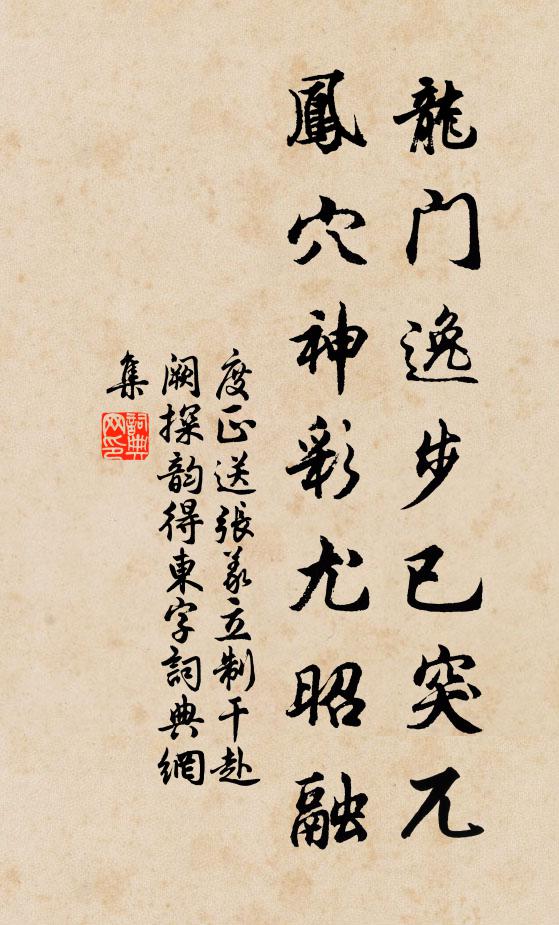 龍门逸步已突兀
鳳穴神彩尤昭融
度正送張義立制干赴
闕探韵得東字詞典網
集
詞典
网印